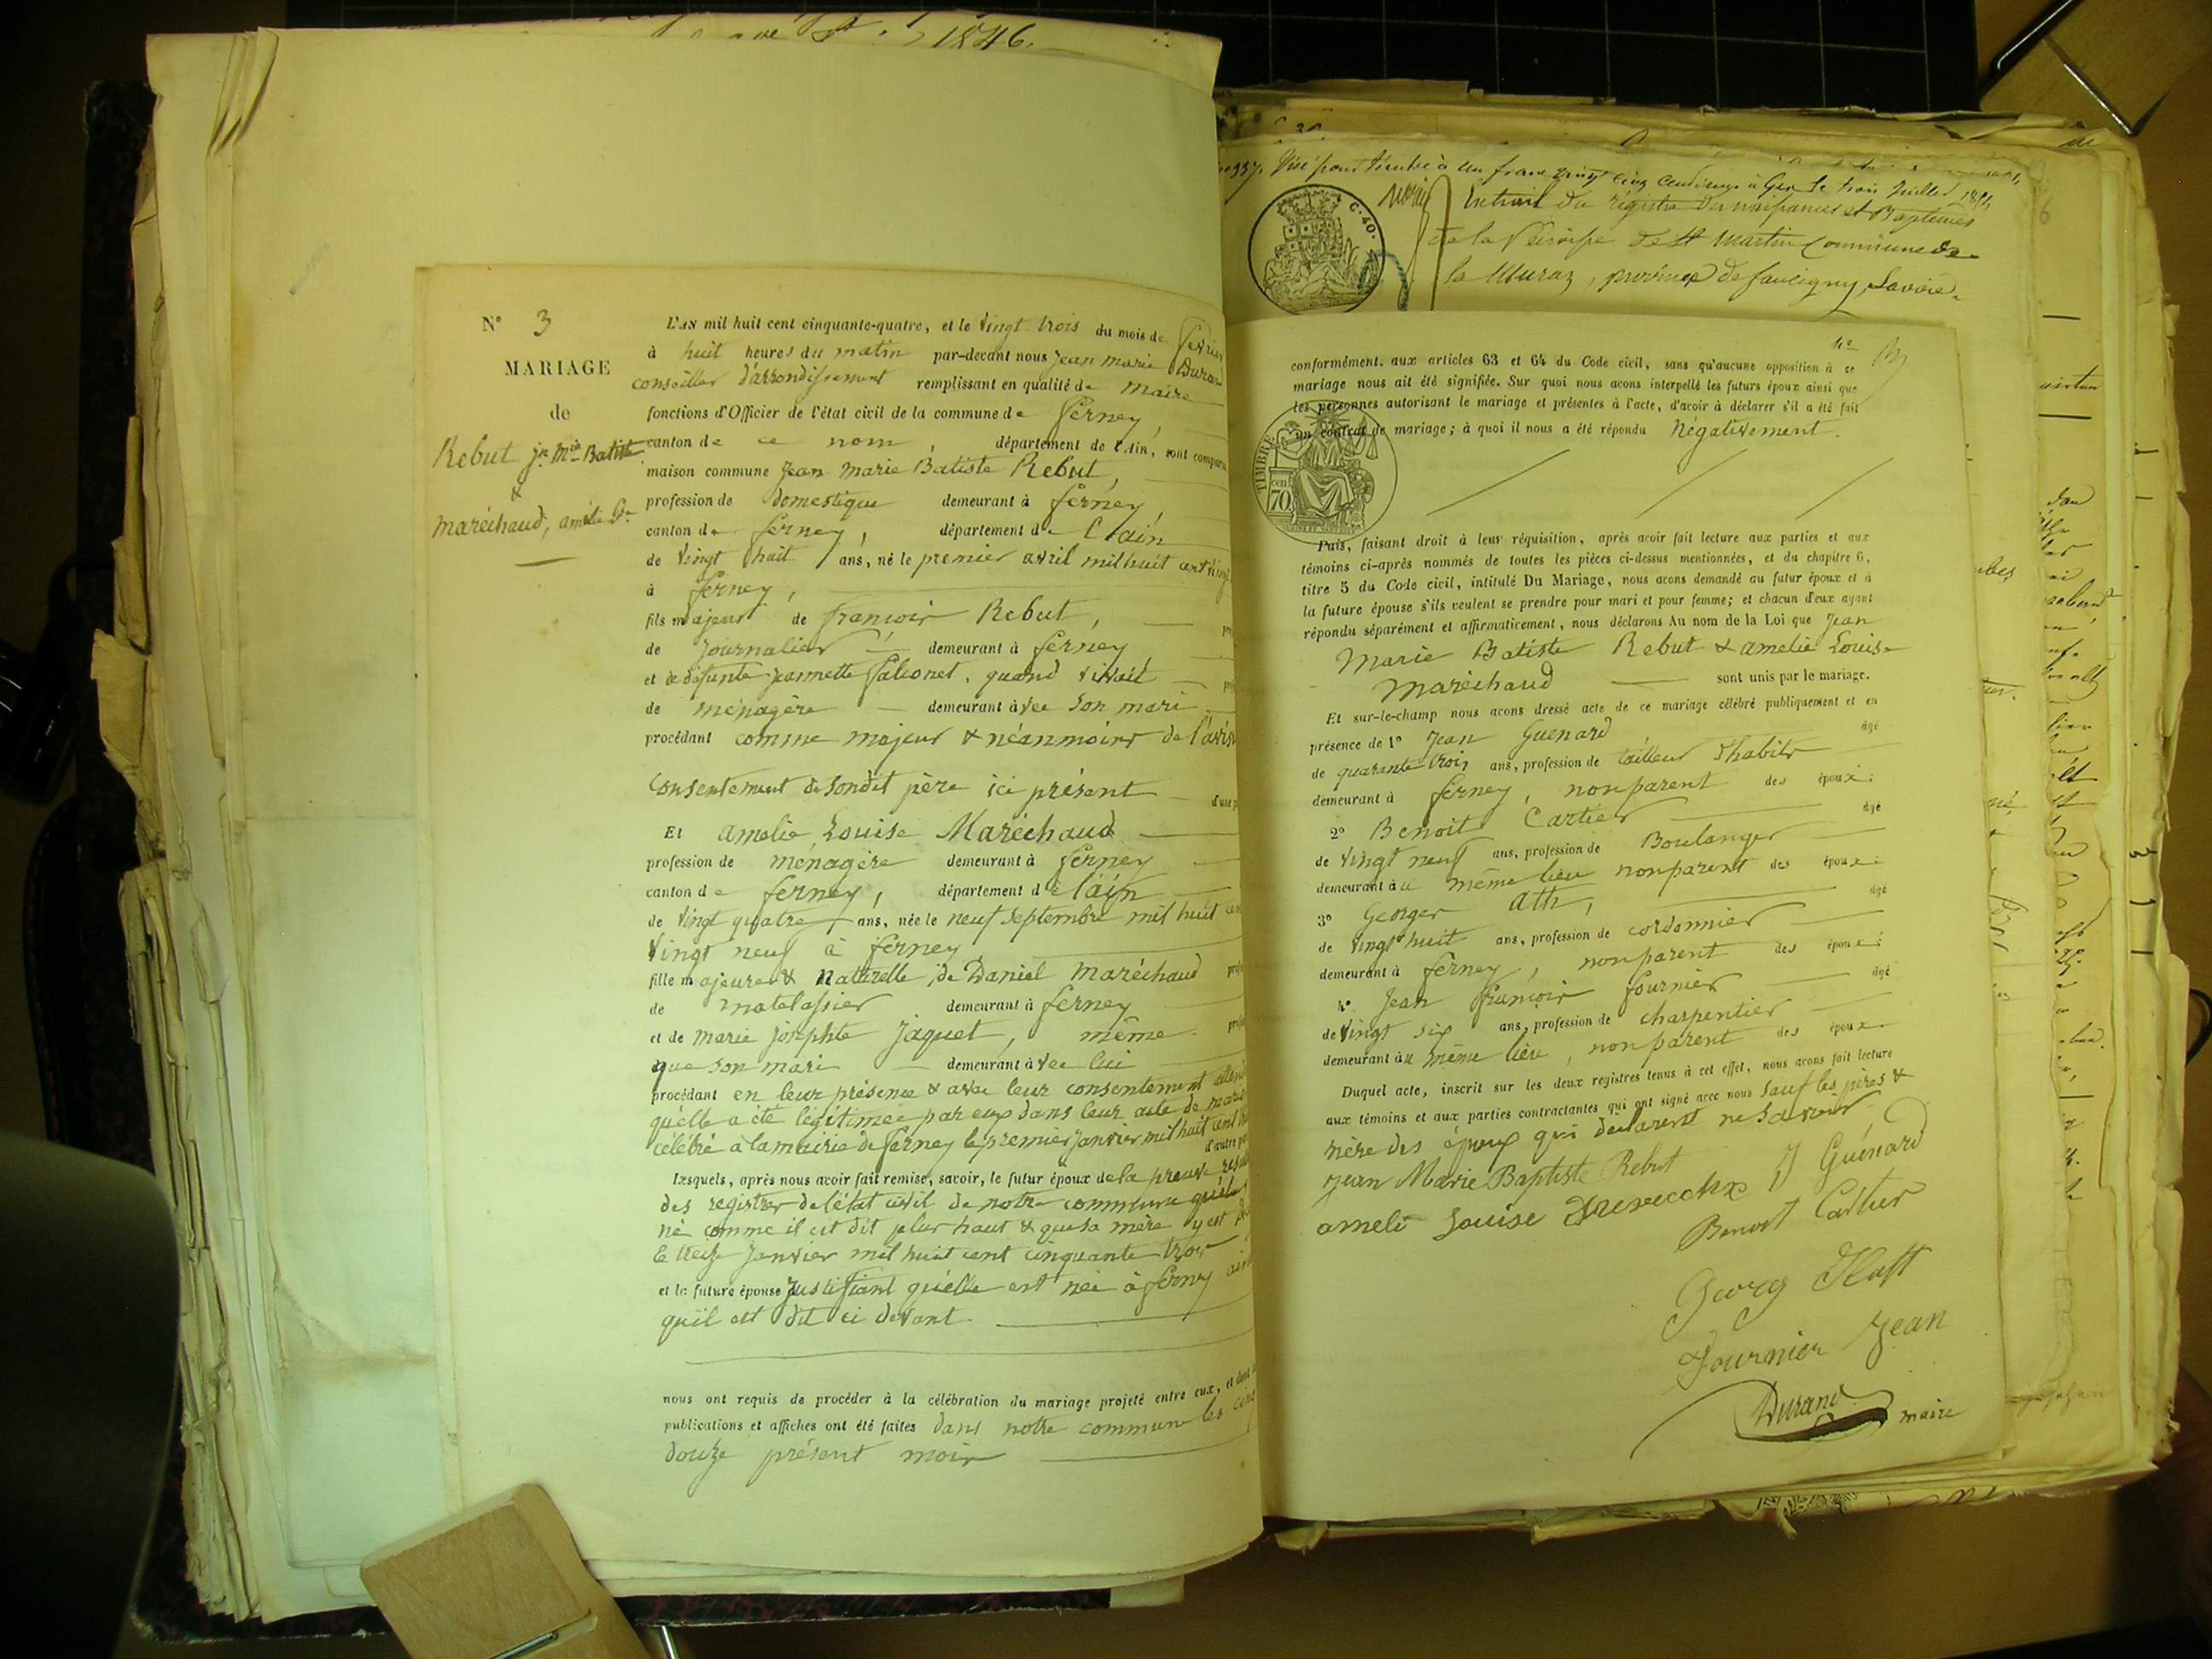 1846.
N° 3
MARIAGE
de
Rebut jn Mie Batiste
&
Maréchaud, amélie Lse
L'AN mil huit cent cinquante-quatre, et le vingt trois du mois de fevrier
à huit heures du matin par-devant nous Jean marie Durand
conseiller d'arrondissement remplissant en qualité de maire
fonctions d'Officier de l'état civil de la commune de ferney,
canton de ce nom, département de l'Ain, sont comparus
maison commune Jean Marie Batiste Rebut,
profession de domestique demeurant à ferney,
canton de ferney, département de l'ain
de vingt huit ans, né le premier avril mil huit cent vingt
à ferney,
fils majeur de françois Rebut,
de journalier demeurant à ferney
et de défunte jeannette quand vivait
de ménagère demeurant avec son mari
procédant comme majeur & néanmoins de l'avis
consentement de sondit père ici présent d'une p
Et amelie Louise Maréchaud
profession de ménagère demeurant à ferney
canton de ferney, département de l'ain
de vingt quatre ans, née le neuf septembre mil huit cen
vingt neuf à ferney
fille majeure & naturelle de Daniel Maréchaud
de matelassier demeurant à ferney
et de marie josephte jaquet, même
que son mari demeurant avec lui
procédant en leur présence & avec leur consentement
qu'elle a été légitimée par eux dans leur acte de maria
célébré à la mairie de ferney le premier janvier mil huit cent
d'autre pa
Lesquels, après nous avoir fait remise, savoir, le futur époux de la preuve
des registres de l'état civil de notre commune qu'il
né comme il est dit plus haut & que sa mère y est
le treize janvier mil huit cent cinquante trois
et la future épouse justifiant qu'elle est née à ferney ains
qu'il est dit ci devant
nous ont requis de procéder à la célébration du mariage projeté entre eux, et dont
publications et affiches ont été faites dans notre commune les cinq
douze présent mois
337. Visé pour timbre à un franc vingt cinq centimes à Gex le trois juillet
Extrait du régistre des naissances et Baptêmes
de la Paroisse de St Martin commune de
la Muraz, province de faucigny, Savoie.
C. 40.
conformément aux articles 63 et 64 du Code civil, sans qu'aucune opposition à ce
mariage nous ait été signifiée. Sur quoi nous avons interpellé les futurs époux ainsi que
les personnes autorisant le mariage et présentes à l'acte, d'avoir à déclarer s'il a été fait
un contrat de mariage; à quoi il nous a été répondu négativement.
TIMBRE
cen
70
Puis, faisant droit à leur réquisition, après avoir fait lecture aux parties et aux
témoins ci-après nommés de toutes les pièces ci-dessus mentionnées, et du chapitre 6,
titre 5 du Code civil, intitulé Du Mariage, nous avons demandé au futur époux et à
la future épouse s'ils veulent se prendre pour mari et pour femme; et chacun d'eux ayant
répondu séparément et affirmativement, nous déclarons Au nom de la Loi que Jean
Marie Batiste Rebut & amelie Louise
Maréchaud sont unis par le mariage.
Et sur-le-champ nous avons dressé acte de ce mariage célébré publiquement et en
présence de 1° Jean Guenard âgé
de quarante trois ans, profession de tailleur d'habits
demeurant à ferney, non parent des époux.
2° Benoit Cartier âgé
de vingt neuf ans, profession de Boulanger
demeurant au même lieu non parent des époux.
3° Georges ath, âgé
de vingt huit ans, profession de cordonnier
demeurant à ferney, non parent des époux.
4° Jean françois fournier âgé
de vingt six ans, profession de charpentier
demeurant au même lieu, non parent des époux.
Duquel acte, inscrit sur les deux registres tenus à cet effet, nous avons fait lecture
aux témoins et aux parties contractantes qui ont signé avec nous sauf les pères &
mère des époux qui déclarent ne savoir
jean Marie Baptiste Rebut J Guénard
ameli Louise
Benoit Cartier
Georg
Fournier Jean
Durand maire